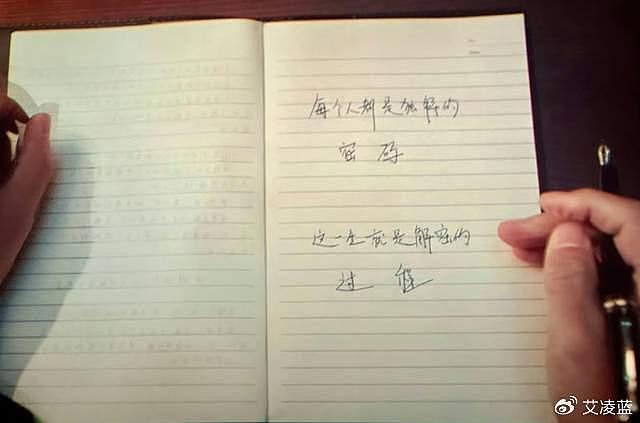 每个人都是难解的
密码
这一生就是解密的
过程
艾凌蓝